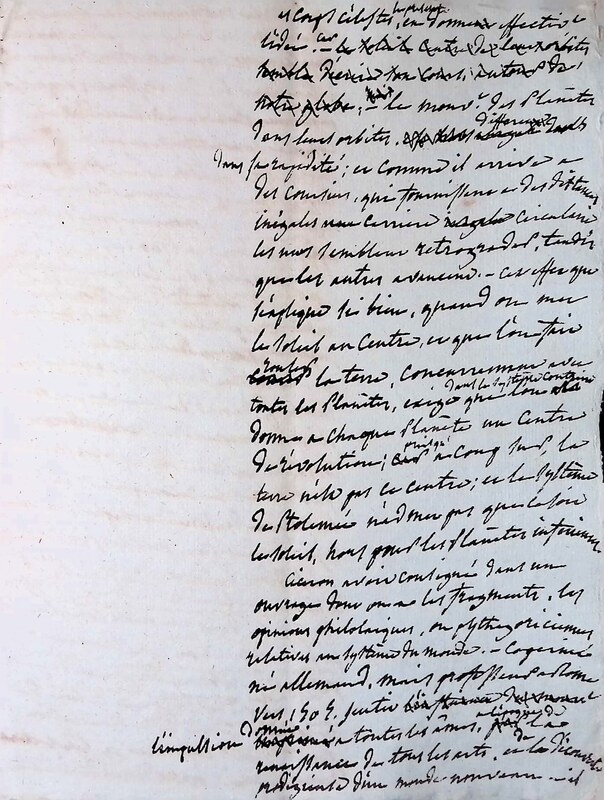 es corps célestes, en donnent effective
l'idée. — le soleil centre de leurs orbites
semble décrire son cours, autour de
notre globe, — le mouvt. des Planètes
dans leurs orbites, différent
dans sa rapidité; et comme il arrive a
des coureurs, qui fournissent a des distances
inégales une carrière circulaire
les uns semblent retrogrades, tandis
que les autres avancent. — cet effet que
s'explique si bien, quand on met
le soleil au centre, et que l'on fait
rouler la terre, concurremment avec
toutes les Planètes, exige que l'on dans le système contraire
donne a chaque Planète un centre
de révolution; puisqu'a coup sur, la
terre n'est pas ce centre; et le système
de Ptolemée n'admet pas que ce soit
le soleil, hors pour les Planètes inférieures
Ciceron avoit consigné dans un
ouvrage dont on a les fragments, les
opinions philolaiques, ou pythagoriciennes
relatives au système du monde. — Copernic
né allemand, mais professeur a Rome
vers 150 , sentit
l'impulsion donnée a toutes les âmes, a l'époque de la
renaissance de tous les arts, et de la découverte
prodigieuse d'un monde nouveau — il